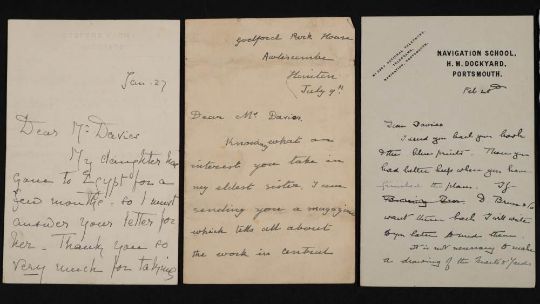 Jan. 27
Dear Mr Davies
My daughter has
gone to Egypt for a
few months - so I must
answer your letter for
her. Thank you so
very much for taking
Rock House
Awliscombe
Honiton
July 9th
Dear Mr Davies,
Knowing what an
interest you take in
my eldest sister, I am
sending you a magazine
which tells all about
the work in central
NAVIGATION SCHOOL,
H. M. DOCKYARD,
PORTSMOUTH.
Feb
Dear Davies
I send you back your book
& the blue prints. These you
had better keep when you have
finished the plans. If
D Bruce & Co
want them back I will write
to you later to send them.
It is not necessary to make
a drawing of the